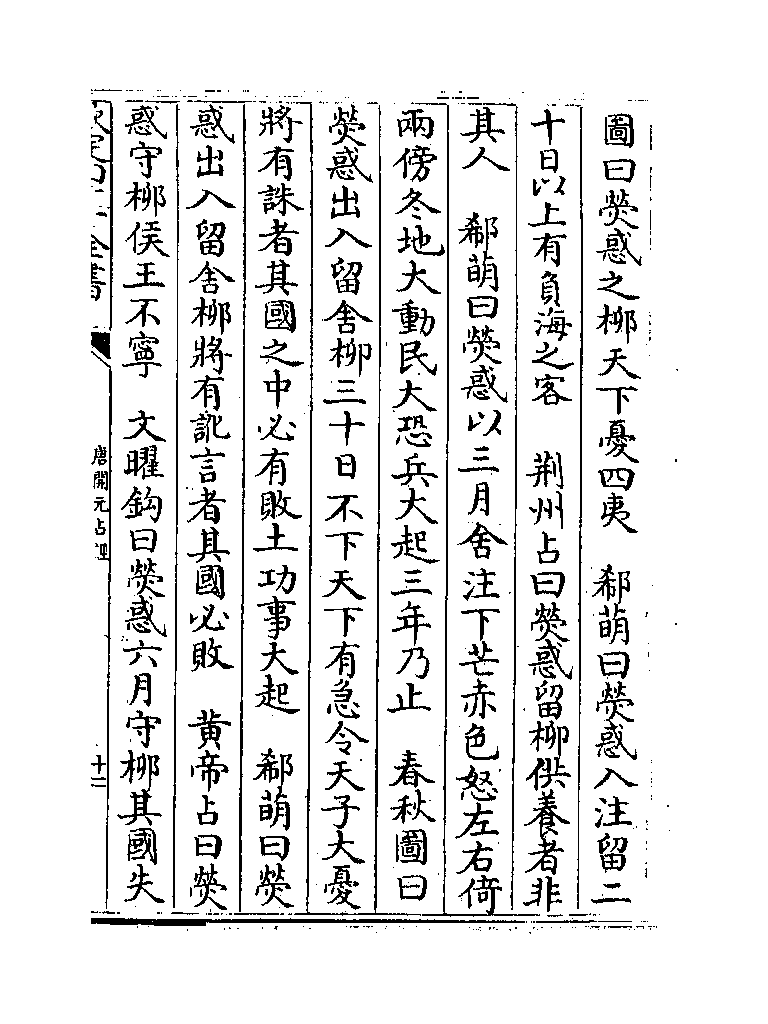 圖曰熒惑之柳天下憂四夷　郗萌曰熒惑入注留二
十日以上有負海之客　荆州占曰熒惑留柳供養者非
其人　郗萌曰熒惑以三月舍注下芒赤色怒左右倚
兩傍冬地大動民大恐兵大起三年乃止　春秋圖曰
熒惑出入留舍柳三十日不下天下有急令天子大憂
將有誅者其國之中必有敗土功事大起　郗萌曰熒
惑出入留舍柳將有訛言者其國必敗　黄帝占曰熒
惑守柳侯王不寧　文曜鈎曰熒惑六月守柳其國失
全書
唐開元占經
十二